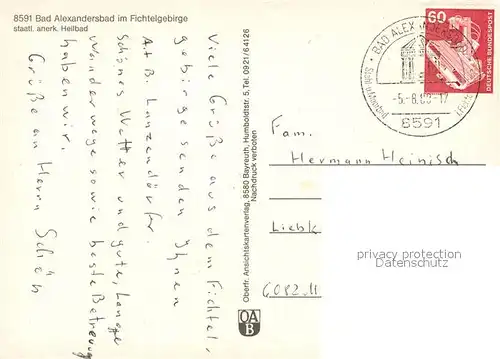 8591 Bad Alexandersbad im Fichtelgebirge
staatl. anerk. Heilbad
Viele Grüße aus dem Fichtel,
gebirge senden Ihnen
A+B. Lanzendörfer.
Schönes Wetter und gute, lange
Wanderwege sowie beste Betreuung
haben wir.
Grüße an Herrn Schön
Oberfr. Ansichtskartenverlag, 8580 Bayreuth, Humboldtstr. 5, Tel. 0921/64126
Nachdruck verboten
OA
B
BAD ALEXANDERSBAD
-5.-8.
-17
8591
60
DEUTSCHE BUNDESPOST
Fam.
Hermann Heinisch
privacy protection
VEIKKOS.com